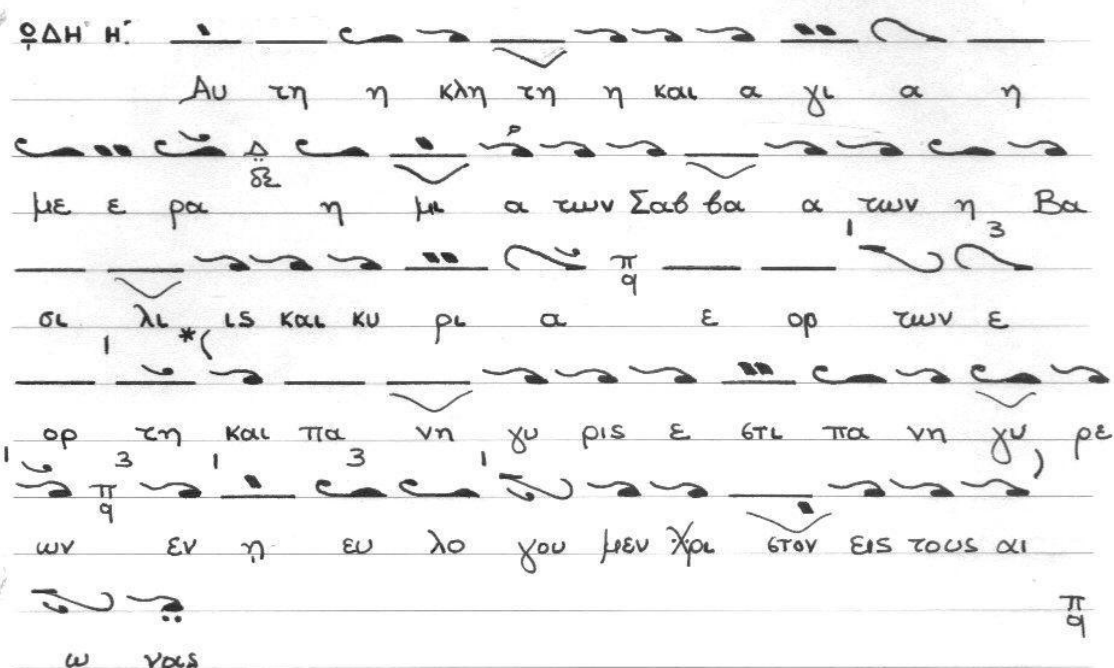 ᾨΔΗ Η΄.
Αυ τη η κλη τη η και α γι α η
Δ
δι
με ε ρα η μι α των Σαβ βα α των η Βα
1 3
π
q
σι λι ις και κυ ρι α ε ορ των ε
1 *
ορ τη και πα νη γυ ρις ε στι πα νη γυ ρε
1 3 1 3 1
π
q
ων εν η ευ λο γου μεν Χρι στον εις τους αι
π
q
ω νας